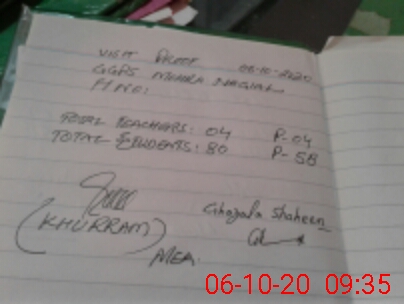 VISIT PROOF 06-10-2020
GGPS MOHRA
TOTAL TEACHERS: 04 P-04
TOTAL STUDENTS: 80 P-58
Ghazala Shaheen
(KHURRAM)
MEA.
06-10-20 09:35